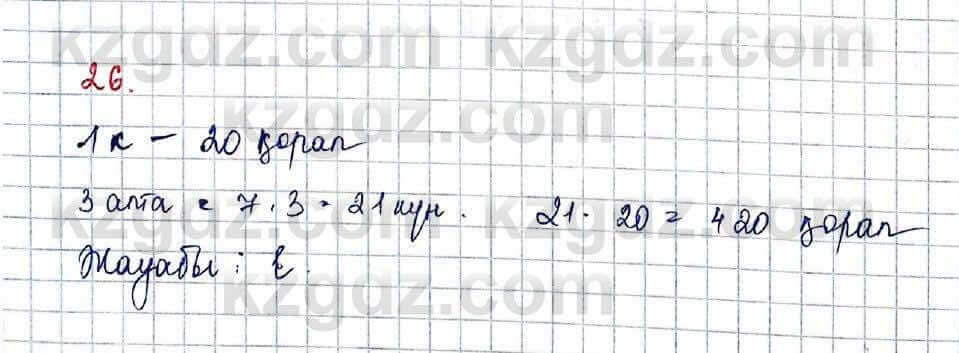 kzgdz.com kzgdz.com
26.
kzgdz.com
1 к – 20 қорап
3 апта = 7 · 3 = 21 күн. 21 · 20 = 420 қорап
kzgdz.com kzgdz.com
Жауабы: Е.
kzgdz.com